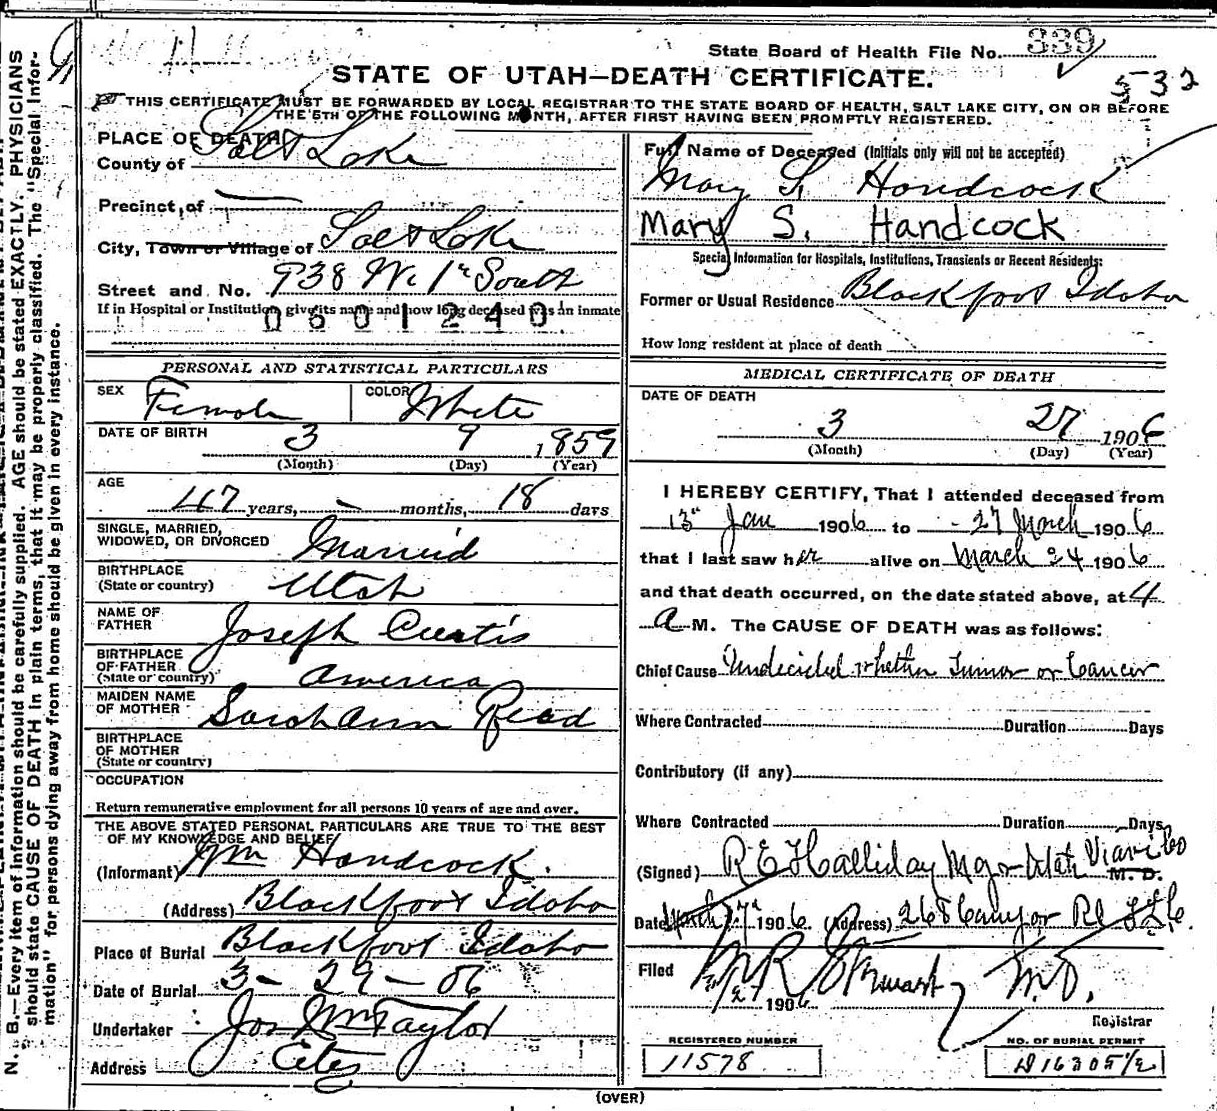 State Board of Health File No. 339
532
STATE OF UTAH—DEATH CERTIFICATE.
THIS CERTIFICATE MUST BE FORWARDED BY LOCAL REGISTRAR TO THE STATE BOARD OF HEALTH, SALT LAKE CITY, ON OR BEFORE
THE 5TH OF THE FOLLOWING MONTH, AFTER FIRST HAVING BEEN PROMPTLY REGISTERED.
N. B.—Every item of information should be carefully supplied. AGE should be stated EXACTLY. PHYSICIANS
should state CAUSE OF DEATH in plain terms, that it may be properly classified. The "Special Infor-
mation" for persons dying away from home should be given in every instance.
PLACE OF DEATH
County of Salt Lake
Precinct of —
City, Town or Village of Salt Lake
Street and No. 938 W. 1st South
If in Hospital or Institution, give its name and how long deceased was an inmate
0601240
PERSONAL AND STATISTICAL PARTICULARS
SEX Female COLOR White
DATE OF BIRTH 3 9 1859
(Month) (Day) (Year)
AGE
47 years, — months, 18 days
SINGLE, MARRIED,
WIDOWED, OR DIVORCED Married
BIRTHPLACE
(State or country) Utah
NAME OF
FATHER Joseph Curtis
BIRTHPLACE
OF FATHER
(State or country) America
MAIDEN NAME
OF MOTHER Sarah Ann Read
BIRTHPLACE
OF MOTHER
(State or country)
OCCUPATION
Return remunerative employment for all persons 10 years of age and over.
THE ABOVE STATED PERSONAL PARTICULARS ARE TRUE TO THE BEST
OF MY KNOWLEDGE AND BELIEF
(Informant) Wm Handcock.
(Address) Blackfoot Idaho
Place of Burial Blackfoot Idaho
Date of Burial 3 - 29 - 06
Undertaker Jos Wm Taylor
Address City
Full Name of Deceased (Initials only will not be accepted)
Mary S. Handcock
Mary S. Handcock
Special Information for Hospitals, Institutions, Transients or Recent Residents:
Former or Usual Residence Blackfoot Idaho
How long resident at place of death
MEDICAL CERTIFICATE OF DEATH
DATE OF DEATH
3 27 1906
(Month) (Day) (Year)
I HEREBY CERTIFY, That I attended deceased from
13th Jan 1906 to 27 March 1906
that I last saw her alive on March 24 1906
and that death occurred, on the date stated above, at 4
A M. The CAUSE OF DEATH was as follows:
Chief Cause Undecided whether Tumor or Cancer
Where Contracted Duration Days
Contributory (if any)
Where Contracted Duration Days
(Signed) R E Halliday Mgr Utah Viavi Co M. D.
Date March 27th 1906 (Address) 268 Canyon Rd S L C.
Filed 3/27 1906 M. D.
Registrar
REGISTERED NUMBER
11578
NO. OF BURIAL PERMIT
D 16305 1/2
(OVER)